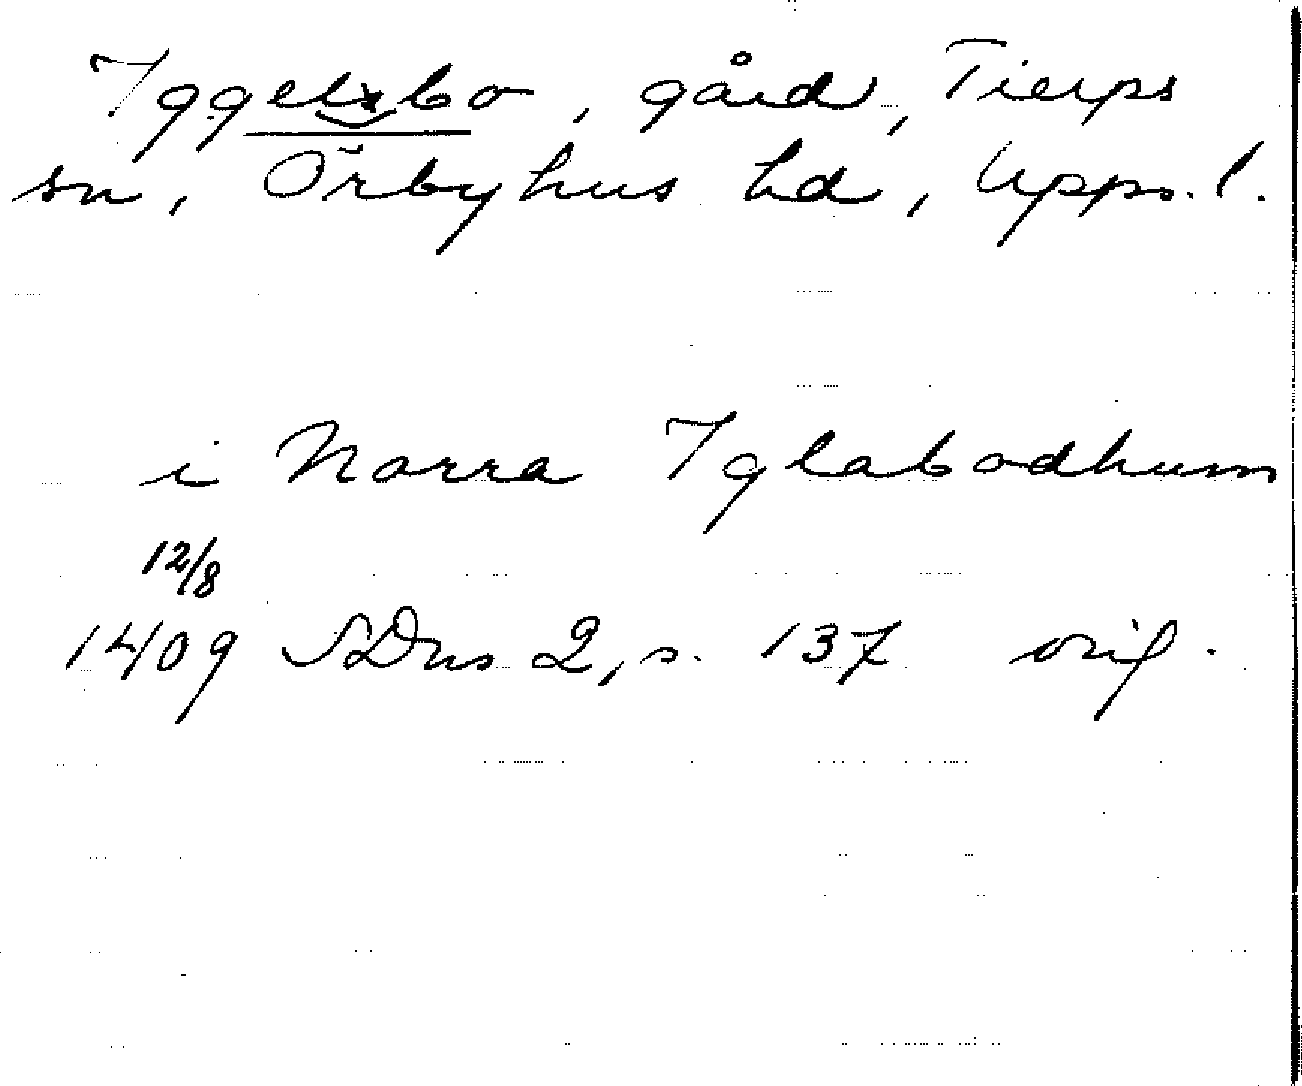 Iggelsbo, gård, Tierps
sn, Örbyhus hd, Upps. l.
i Norra Iglabodhum
12/8
1409 SDns 2, s. 137 orig.